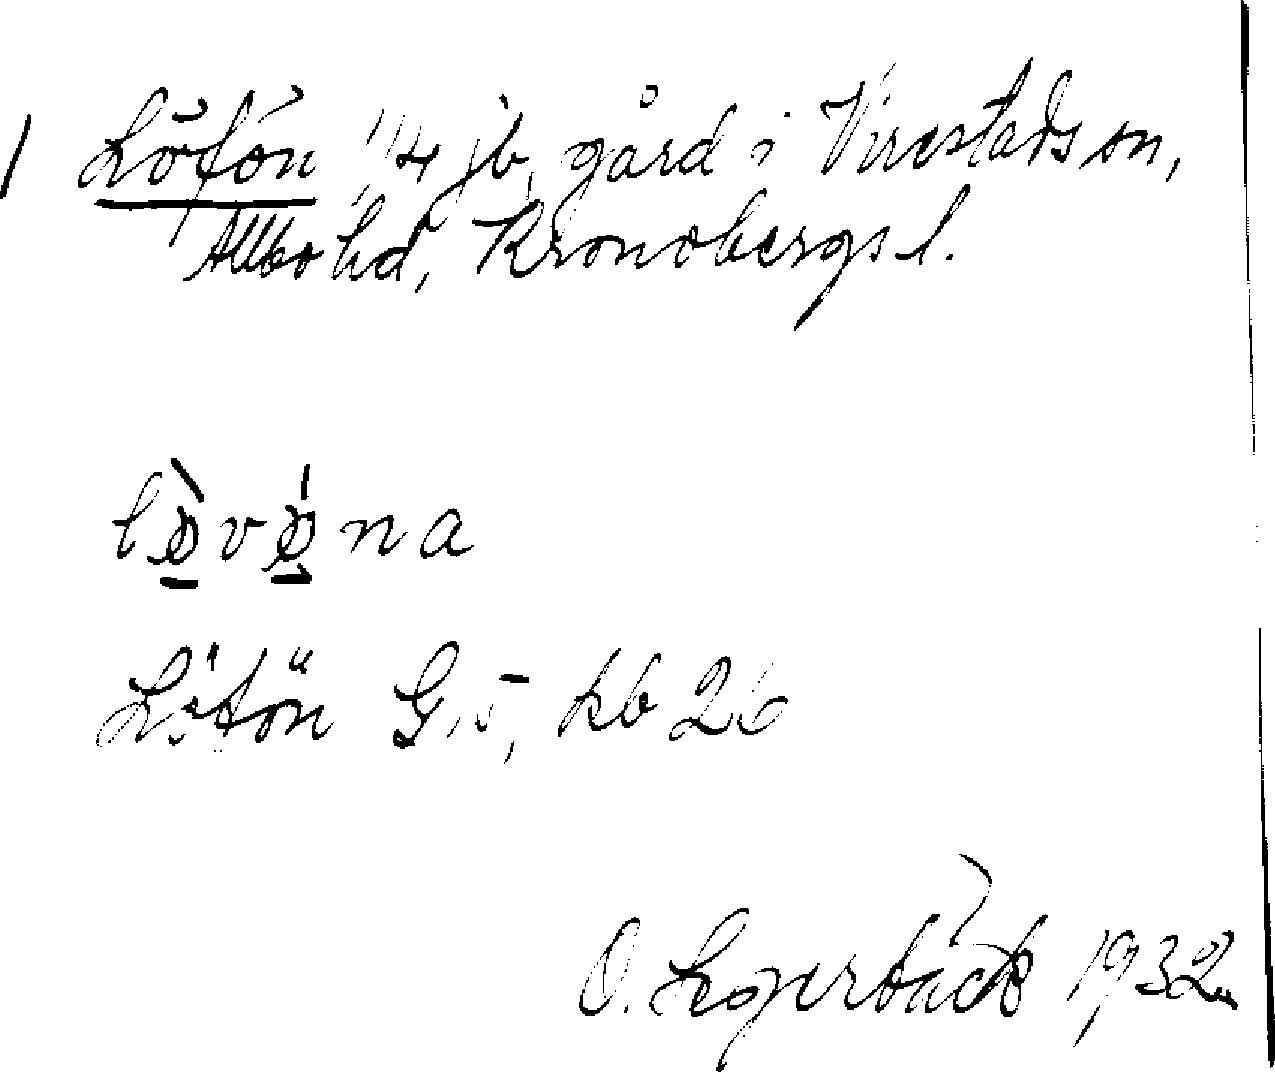 Löfön 1/4 jb, gård i Virestads sn,
Allbo hd, Kronobergs l.
lø̀vǿna
Löfön G.5, kb 26
O. Lagerbäck 1932